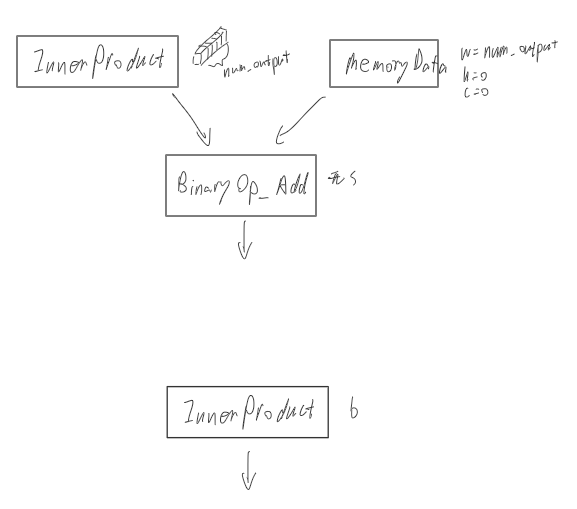 InnerProduct
num_output
MemoryData
w=num_output
h=0
c=0
BinaryOp_Add
无 s
InnerProduct
b